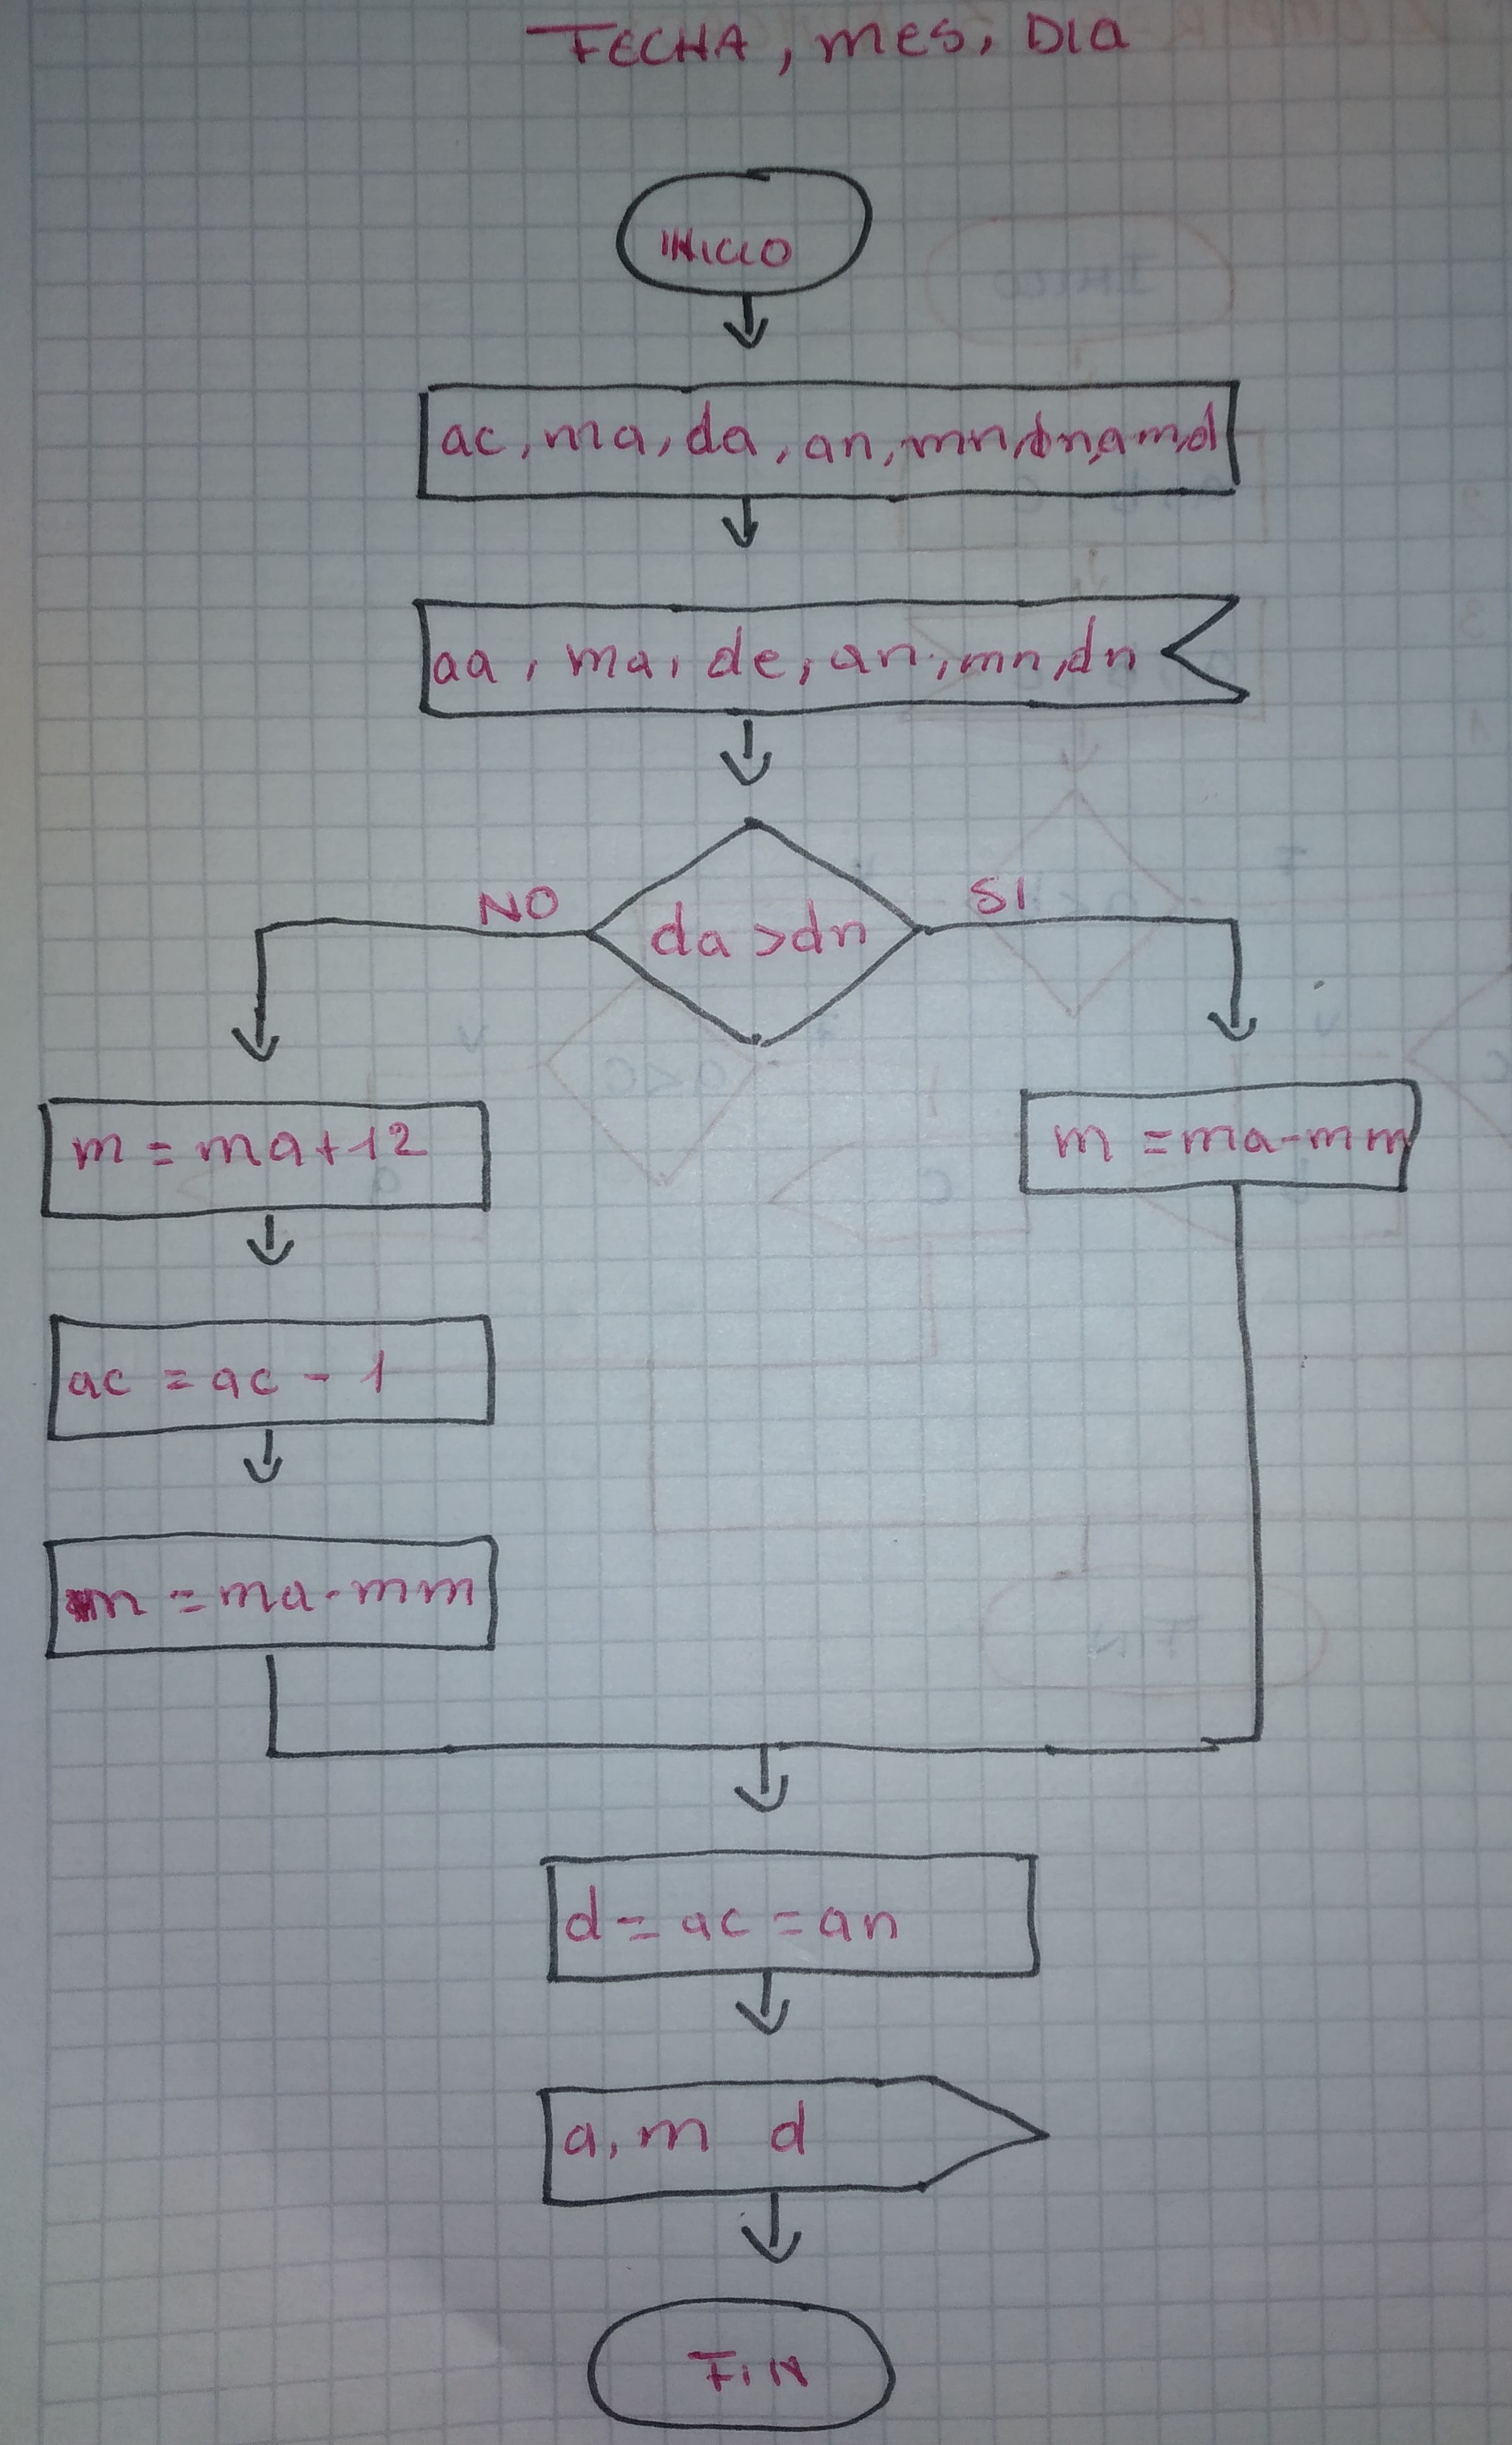 FECHA, mes, DIa
INICIO
ac, ma, da, an, mn, dn, a m, d
aa, ma, de, an, mn, dn
NO
da > dn
SI
m = ma + 12
m = ma - mm
ac = ac - 1
m = ma - mm
d = ac = an
a, m d
FiN